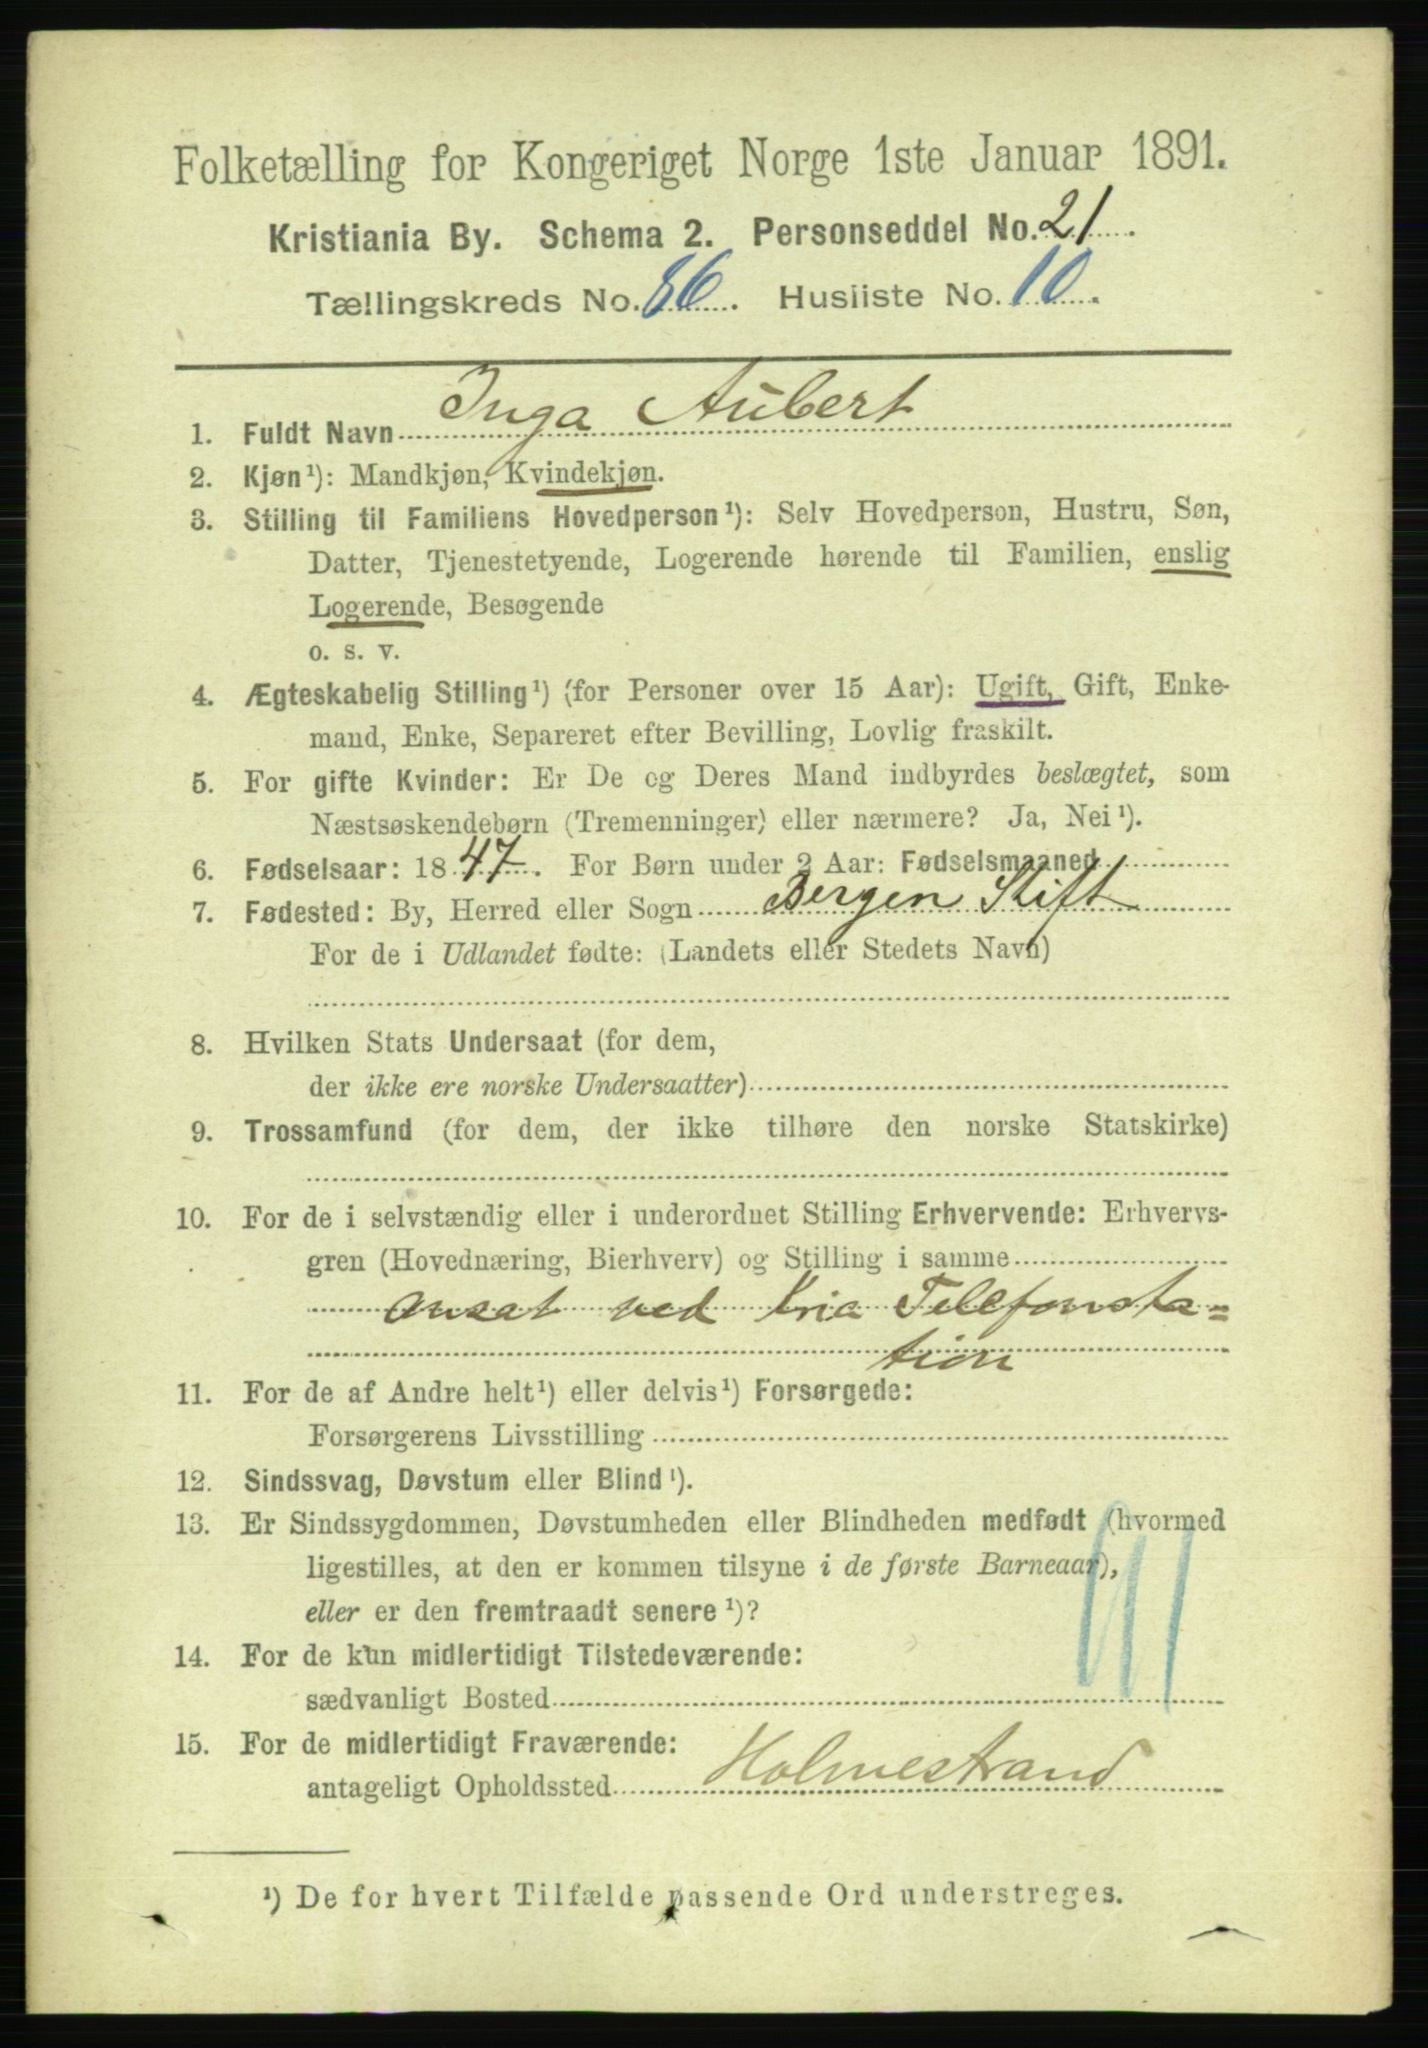 Folketælling for Kongeriget Norge 1ste Januar 1891.
Kristiania By. Schema 2. Personseddel No. 21.
Tællingskreds No. 86. Husliste No. 10.
1. Fuldt Navn Inga Aubert
2. Kjøn¹): Mandkjøn, Kvindekjøn.
3. Stilling til Familiens Hovedperson¹): Selv Hovedperson, Hustru, Søn,
Datter, Tjenestetyende, Logerende hørende til Familien, enslig
Logerende, Besøgende
o. s. v.
4. Ægteskabelig Stilling¹) (for Personer over 15 Aar): Ugift, Gift, Enke-
mand, Enke, Separeret efter Bevilling, Lovlig fraskilt.
5. For gifte Kvinder: Er De og Deres Mand indbyrdes beslægtet, som
Næstsøskendebørn (Tremenninger) eller nærmere? Ja, Nei¹).
6. Fødselsaar: 1847. For Børn under 2 Aar: Fødselsmaaned
7. Fødested: By, Herred eller Sogn Bergen Stift
For de i Udlandet fødte: (Landets eller Stedets Navn)
8. Hvilken Stats Undersaat (for dem,
der ikke ere norske Undersaatter)
9. Trossamfund (for dem, der ikke tilhøre den norske Statskirke)
10. For de i selvstændig eller i underordnet Stilling Erhvervende: Erhvervs-
gren (Hovednæring, Bierhverv) og Stilling i samme
ansat ved Kria Telefonsta=
tion
11. For de af Andre helt¹) eller delvis¹) Forsørgede:
Forsørgerens Livsstilling
12. Sindssvag, Døvstum eller Blind¹).
13. Er Sindssygdommen, Døvstumheden eller Blindheden medfødt (hvormed
ligestilles, at den er kommen tilsyne i de første Barneaar),
eller er den fremtraadt senere¹)?
14. For de kun midlertidigt Tilstedeværende:
sædvanligt Bosted
15. For de midlertidigt Fraværende:
antageligt Opholdssted Holmestrand
¹) De for hvert Tilfælde passende Ord understreges.